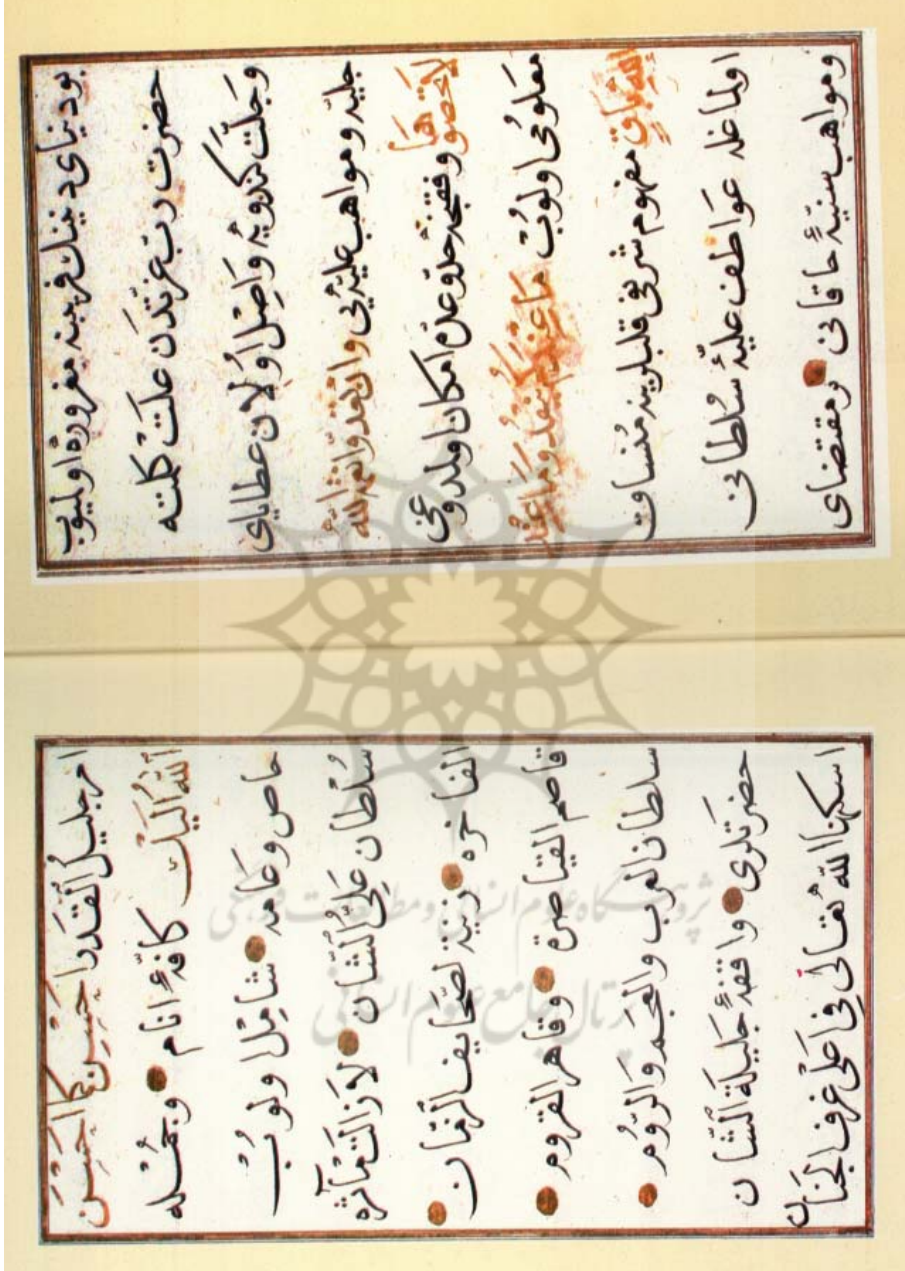 بو دنیای دنینك فریبنه مغرور اولمیوب
حضرت رب عزتدن علت كلمته
وجلّت كندویه واصل اولان عطایای
جلیه و مواهب علیه یی وان تعدوا نعمة الله
لا تحصوها وفقنجه حد امكان اولدوغی
معلومی اولوب ما عندكم ینفد وما عند
الله باق مفهوم شریفی قلبلرینه منساق
اولماغله عواطف علیۀ سلطانی
ومواهب سنیۀ خاقانی ومقتضای
امر جلیل القدر احسن كما احسن
الله الیك كافۀ انام وجمله
خاص و عامه شامل اولوب
سلطان علیّ الشان لازالت مآثره
الفاخره زینة لصحایف الزمان
قاصم القیاصره وقاهر القروم
سلطان العرب والعجم والروم
حضرتلری واقفۀ جلیلة الشان
اسكنها الله تعالی فی اعلی غرف الجنان
پژوهشگاه علوم انسانی و مطالعات فرهنگی
پرتال جامع علوم انسانی